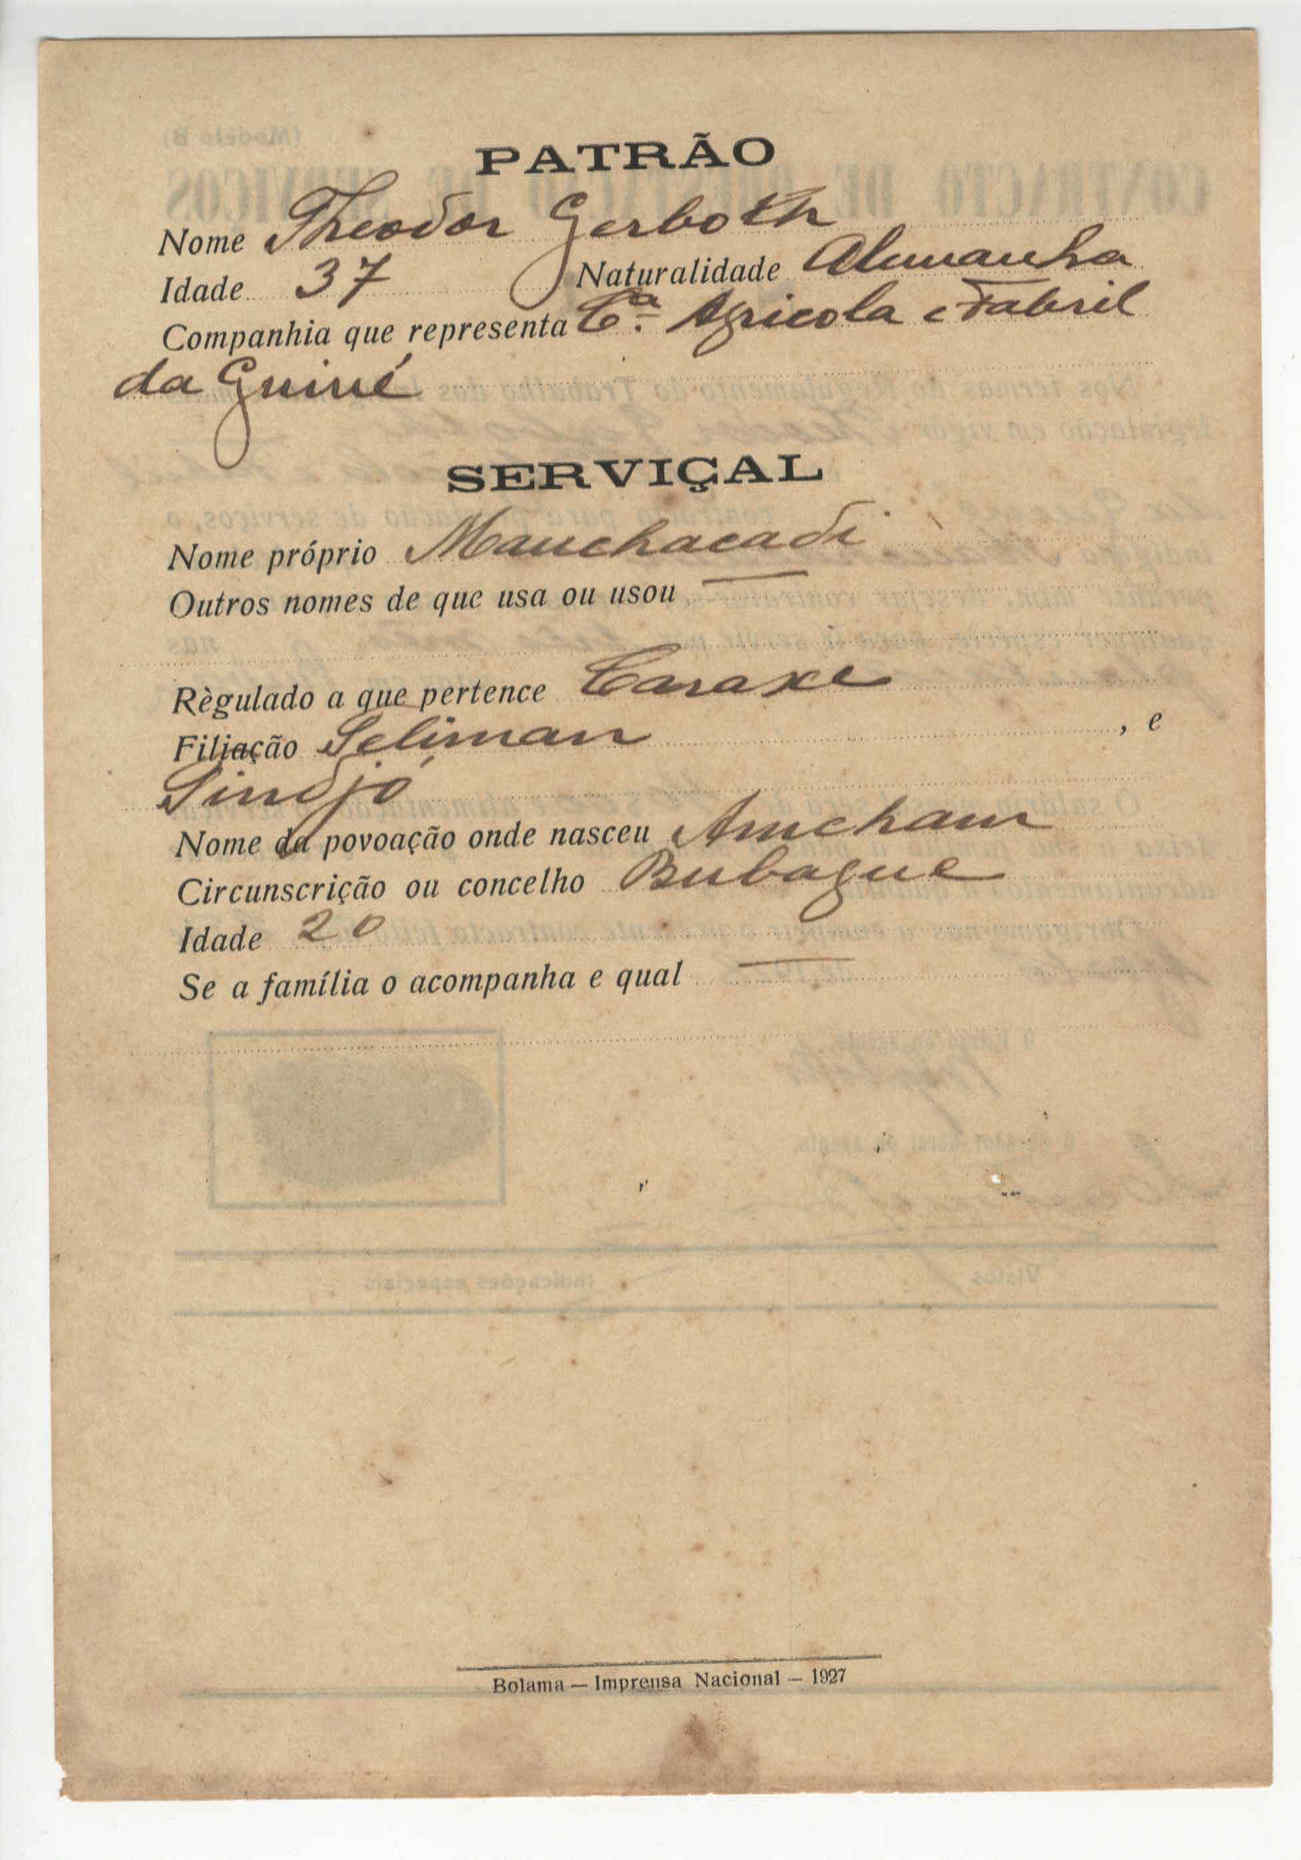 PATRÃO
Nome Theodor Gerboth
Idade 37 Naturalidade Alemanha
Companhia que representa Cª. Agricola e Fabril
da Guiné
SERVIÇAL
Nome próprio Manchacadi
Outros nomes de que usa ou usou —
Règulado a que pertence Caraxe
Filiação Seliman, e
Sindjó
Nome da povoação onde nasceu Ancham
Circunscrição ou concelho Bubaque
Idade 20
Se a família o acompanha e qual —
Bolama — Imprensa Nacional — 1927